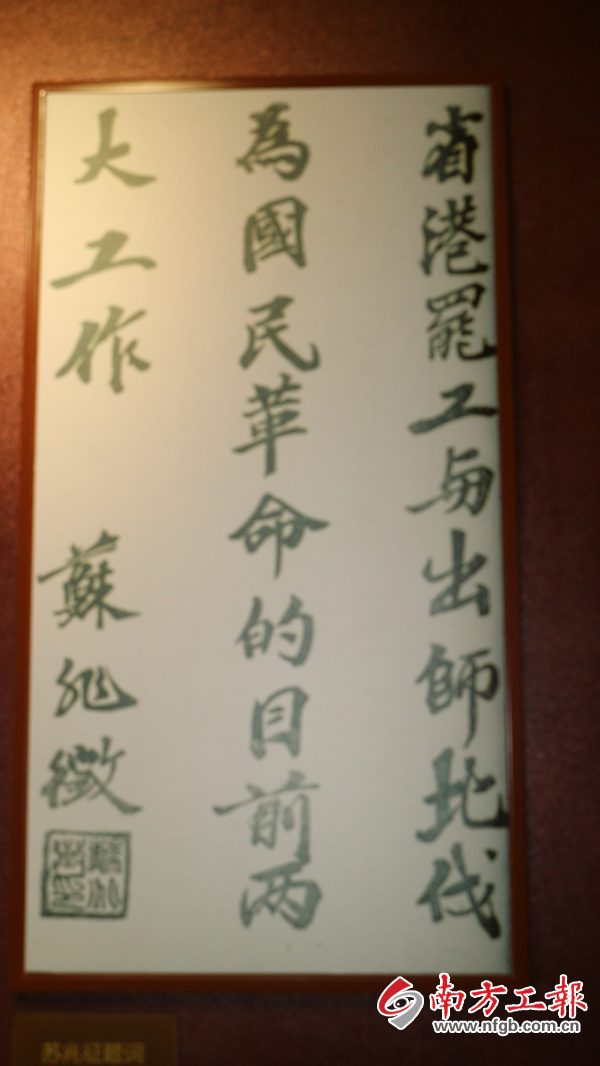 省港罷工与出師北伐
為國民革命的目前两
大工作
蘇兆徵
苏兆征题词
南方工報
www.nfgb.com.cn